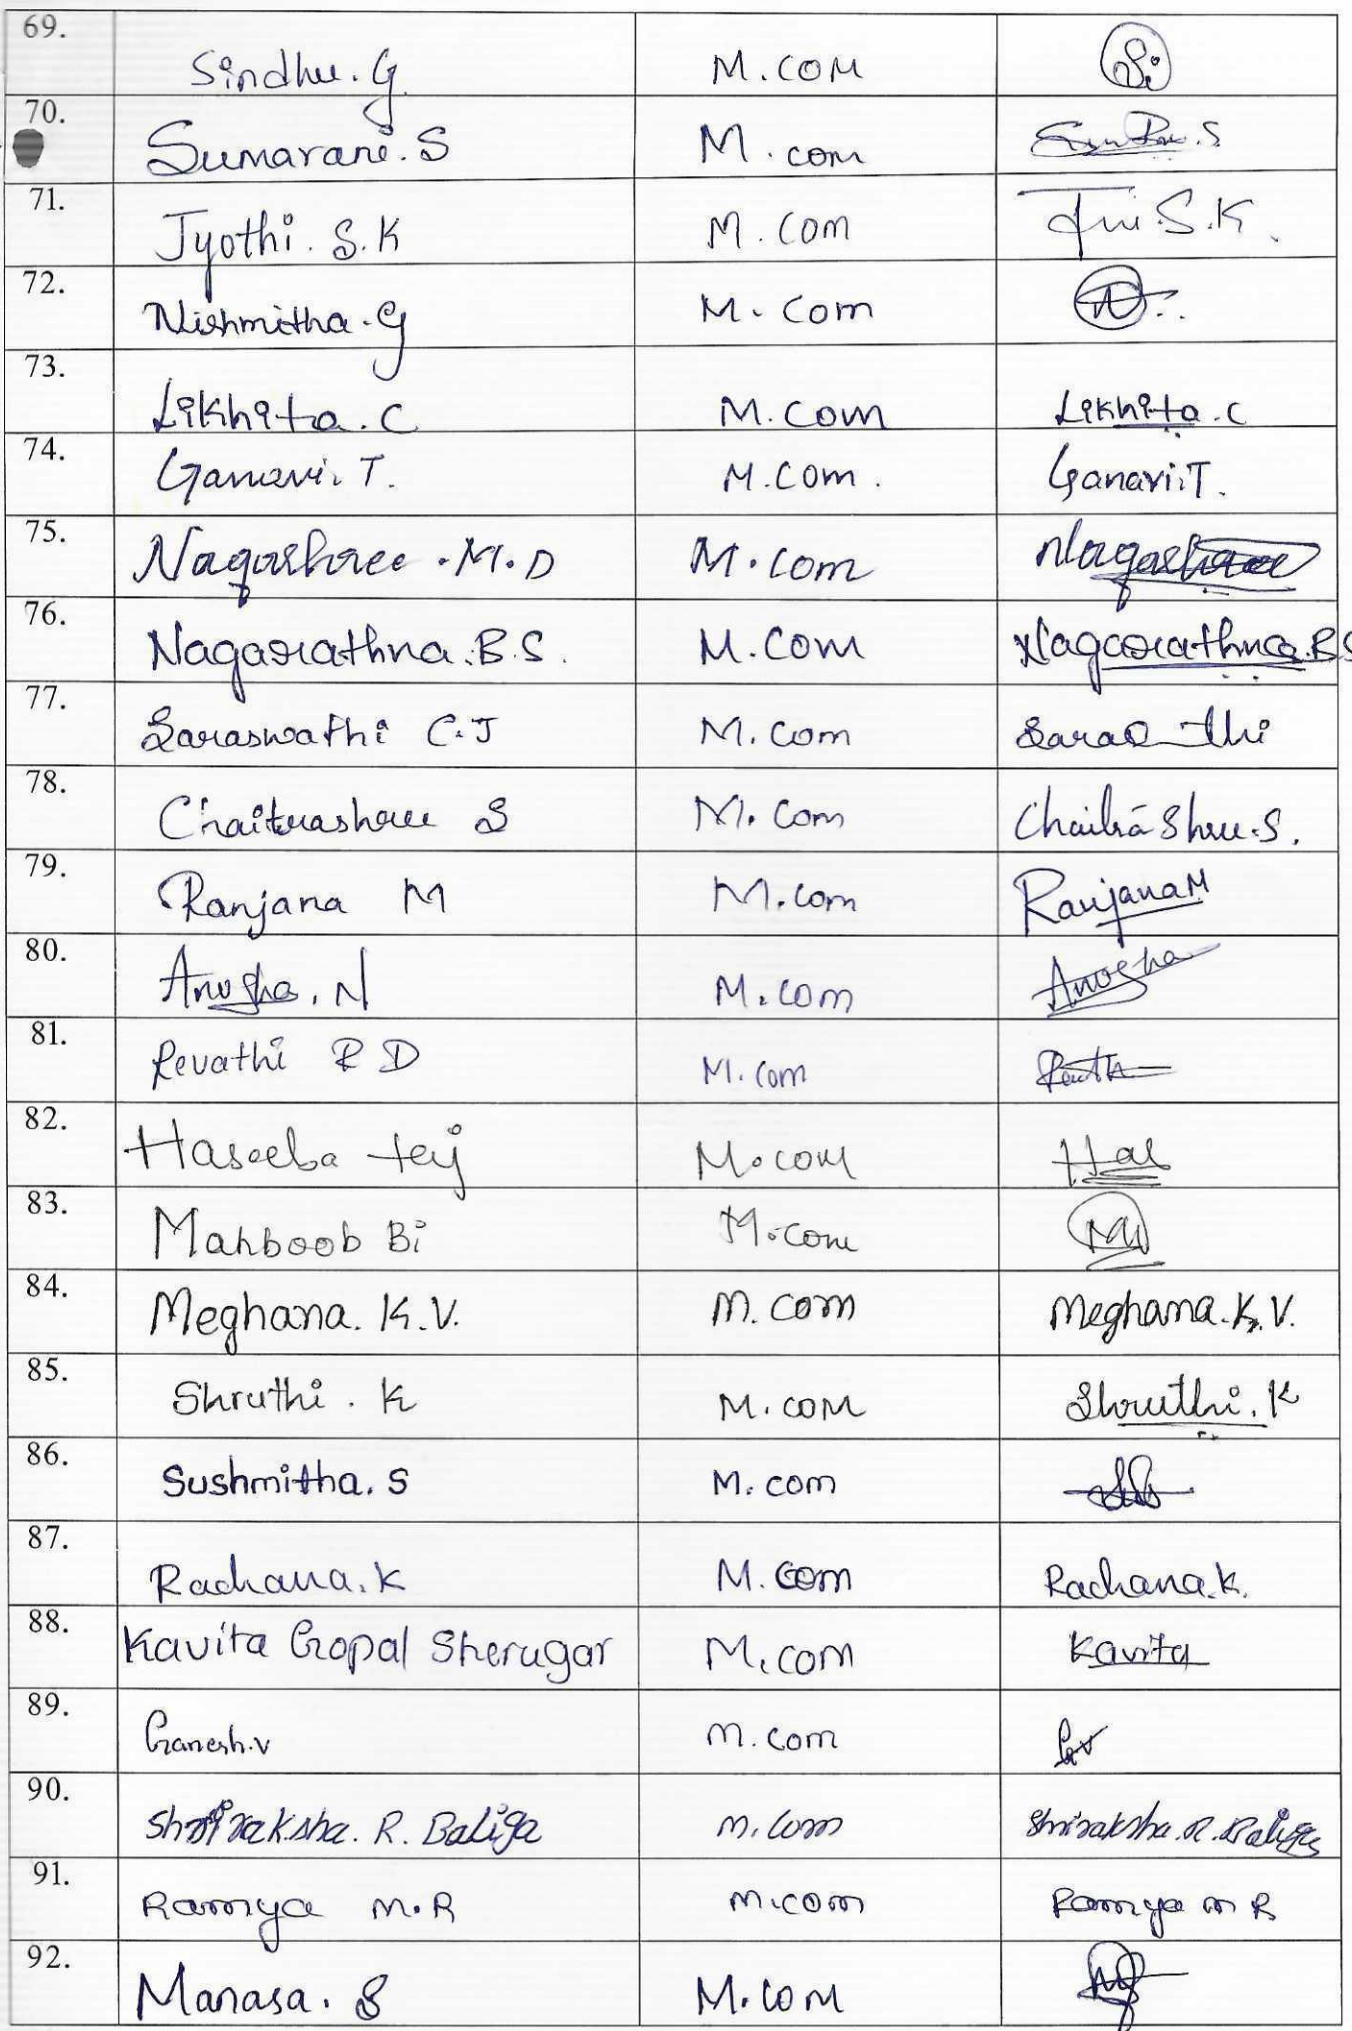 69. Sindhu. G. M.COM
70. Sumarani. S M. com
71. Jyothi. S. K M. Com S. K.
72. Nishmitha. G M. Com
73. Likhita. C M. Com Likhita. C
74. Ganavi. T. M.Com. Ganavi.T.
75. Nagashree. M. D M. Com Nagashree
76. Nagarathna. B. S. M. Com Nagarathna. B S
77. Saraswathi C. J M. Com
78. Chaitrashree S M. Com Chaitra Shree. S.
79. Ranjana M M. Com Ranjana M
80. Anusha. N M. com Anusha
81. Revathi R D M. Com
82. Haseeba tej M. com Has
83. Mahboob Bi M. com
84. Meghana. K. V. M. com Meghana. K. V.
85. Shruthi. K M. COM Shruthi. K
86. Sushmitha. S M. com
87. Rachana. K M. Com Rachana. K.
88. Kavita Gopal Sherugar M. com Kavita
89. Ganesh. V M. com GV
90. Shriraksha. R. Baliga M. Com Shriraksha. R. Baliga
91. Ramya M. R M. com Ramya M R
92. Manasa. S M. COM